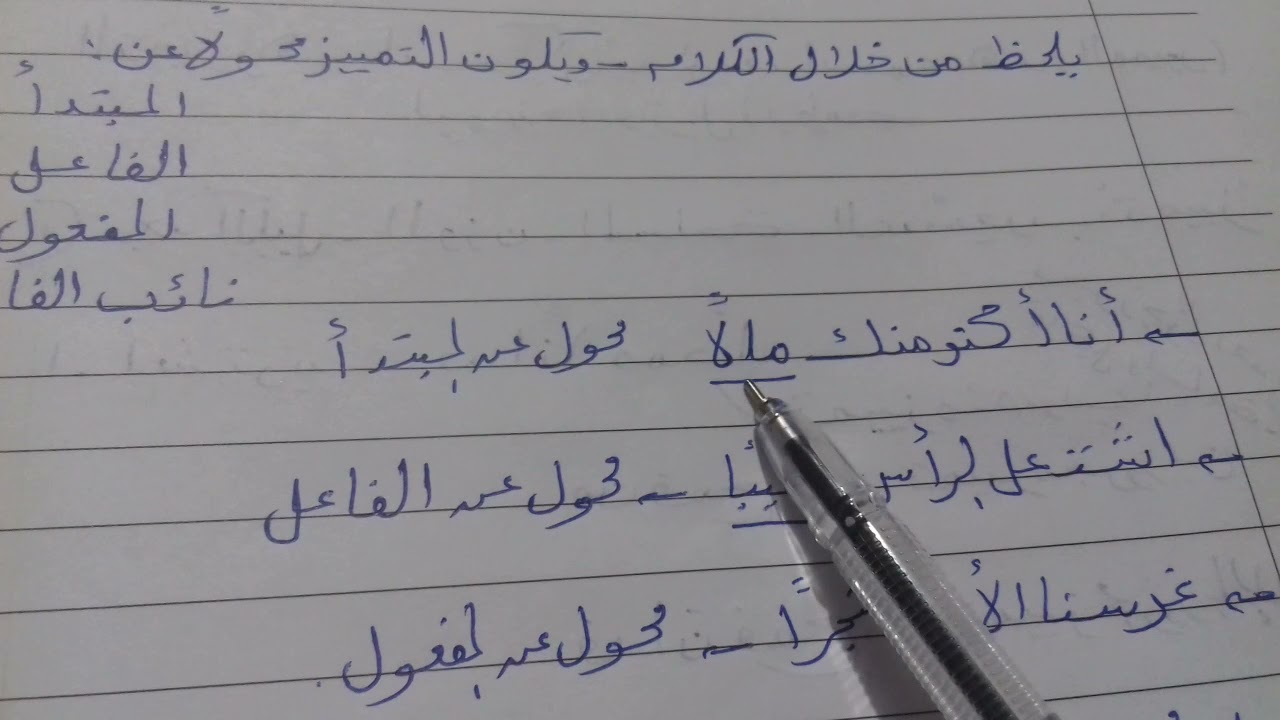 يلحظ من خلال الكلام - ويكون التمييز محولًا عن :
المبتدأ
الفاعل
المفعول
نائب الفا
أنا أكثر منك مالًا محول عن المبتدأ
اشتعل الرأس - محول عن الفاعل
غرسنا - محول عن المفعول